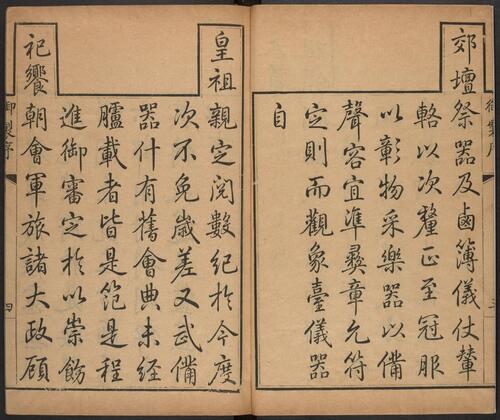 郊壇祭器及鹵簿儀仗輦
輅以次釐正至冠服
以彰物采樂器以備
聲容宜準彜章允符
定則而觀象臺儀器
自
皇祖親定閱數紀於今度
次不免歲差又武備
器什有舊會典未經
臚載者皆是範是程
進御審定於以崇飭
祀饗朝會軍旅諸大政顧
御製序
四